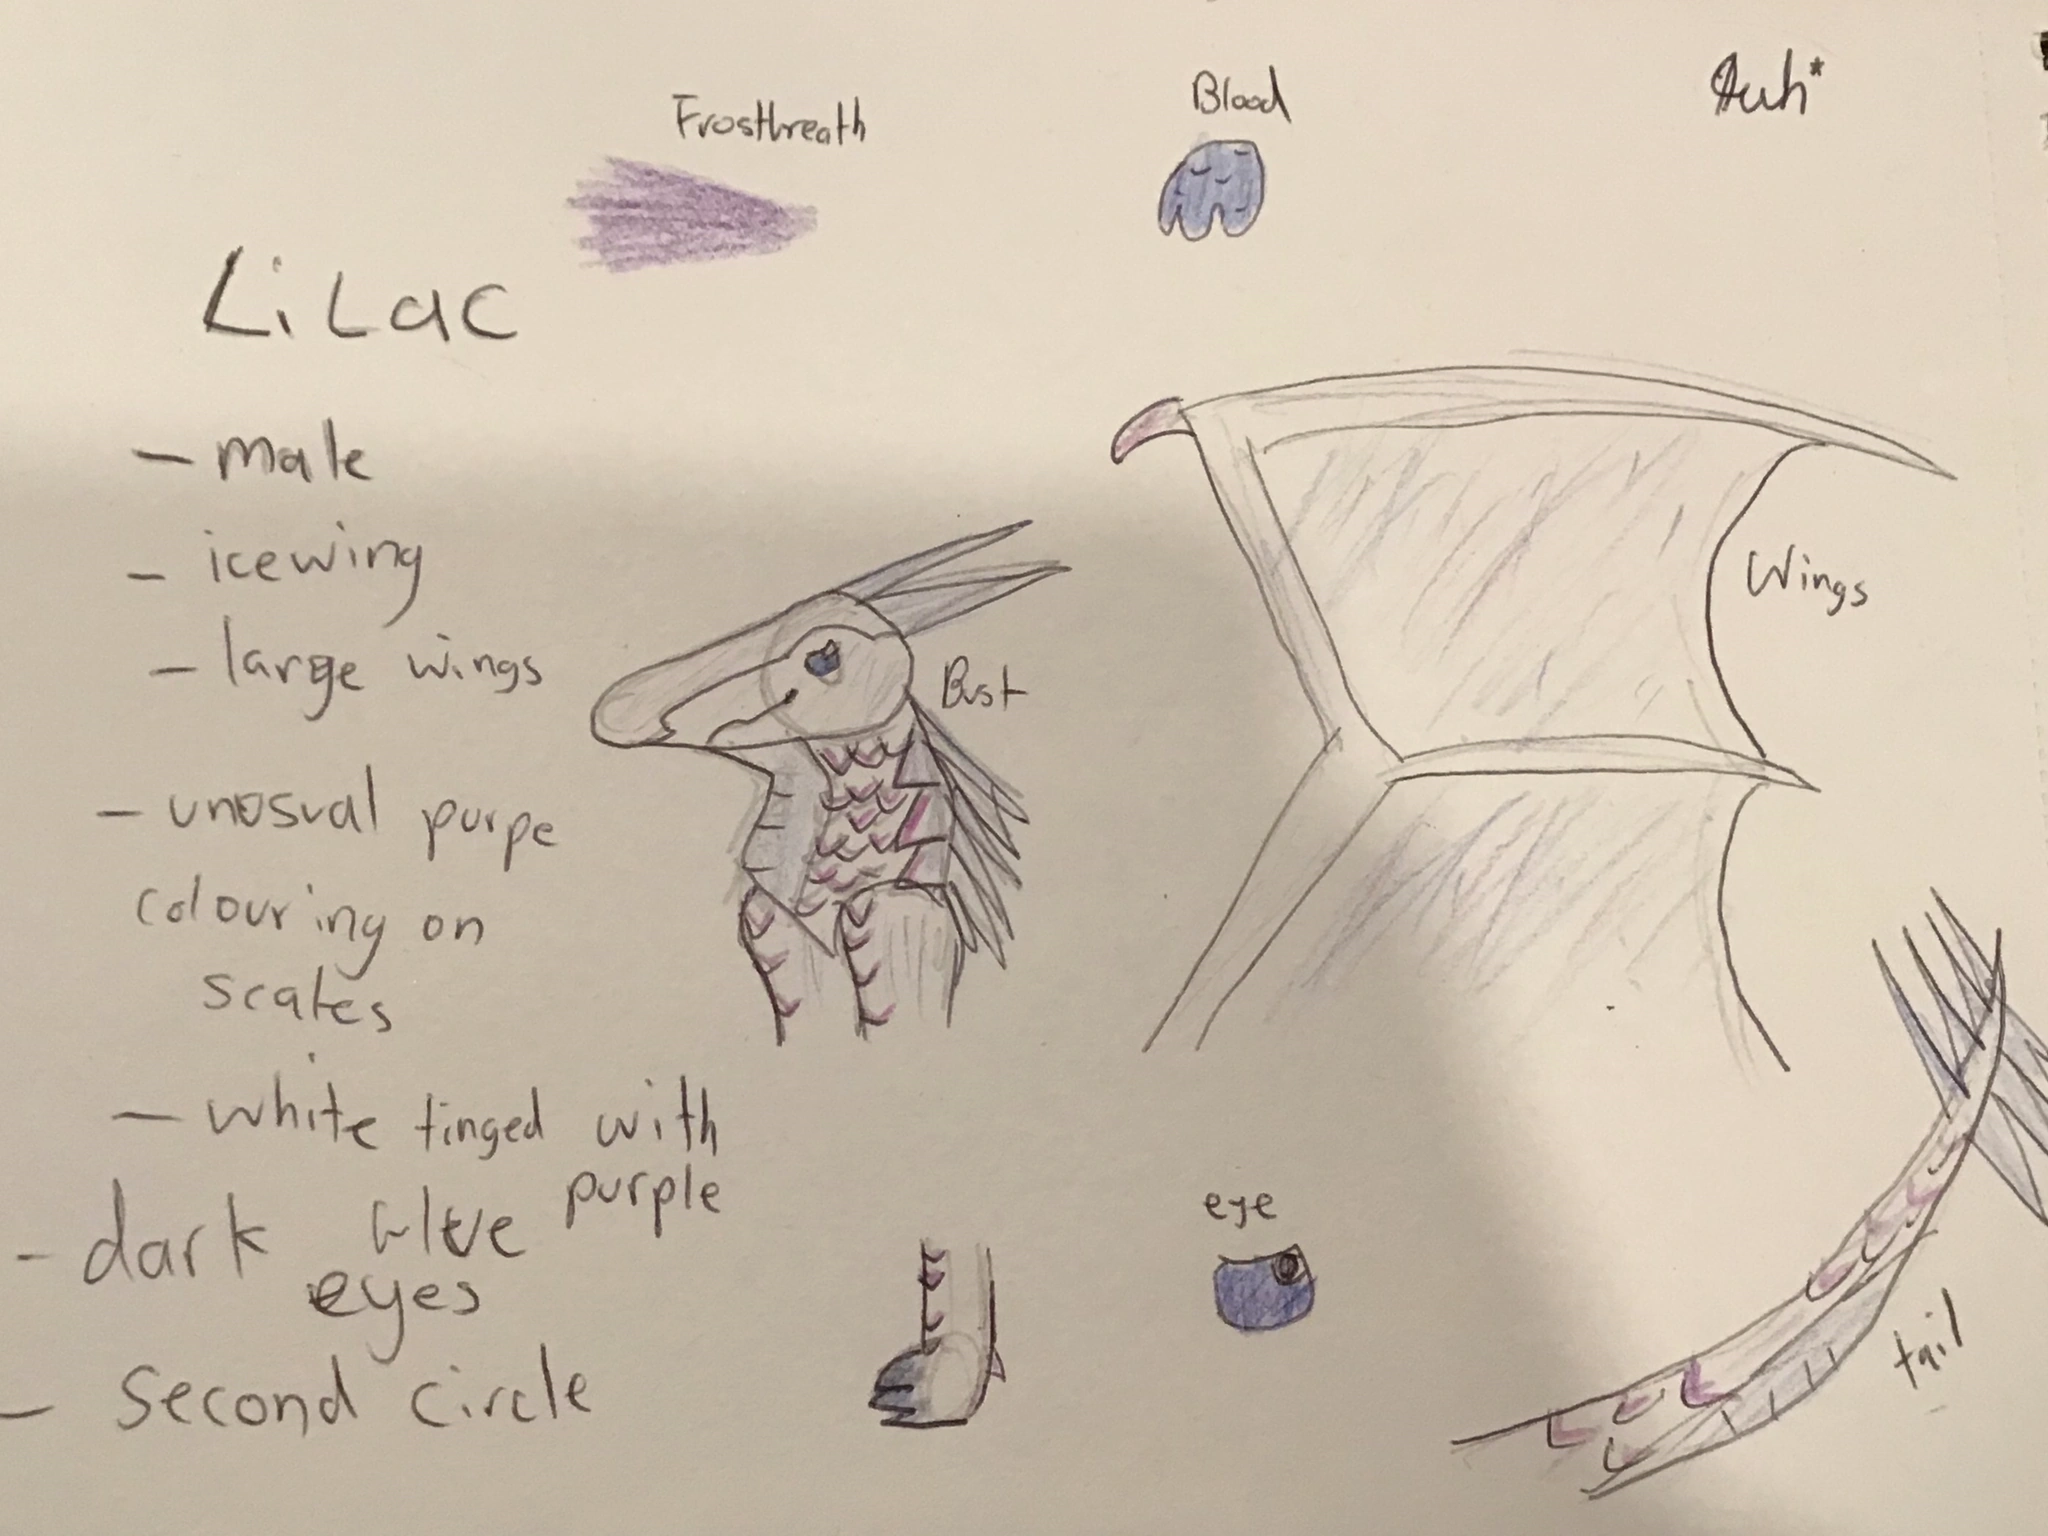 Frostbreath
Blood
LiLac
- male
- icewing
- large wings
- unusual purpe
colouring on
scales
- white tinged with
purple
- dark blue
eyes
- second circle
Bust
Wings
eye
tail